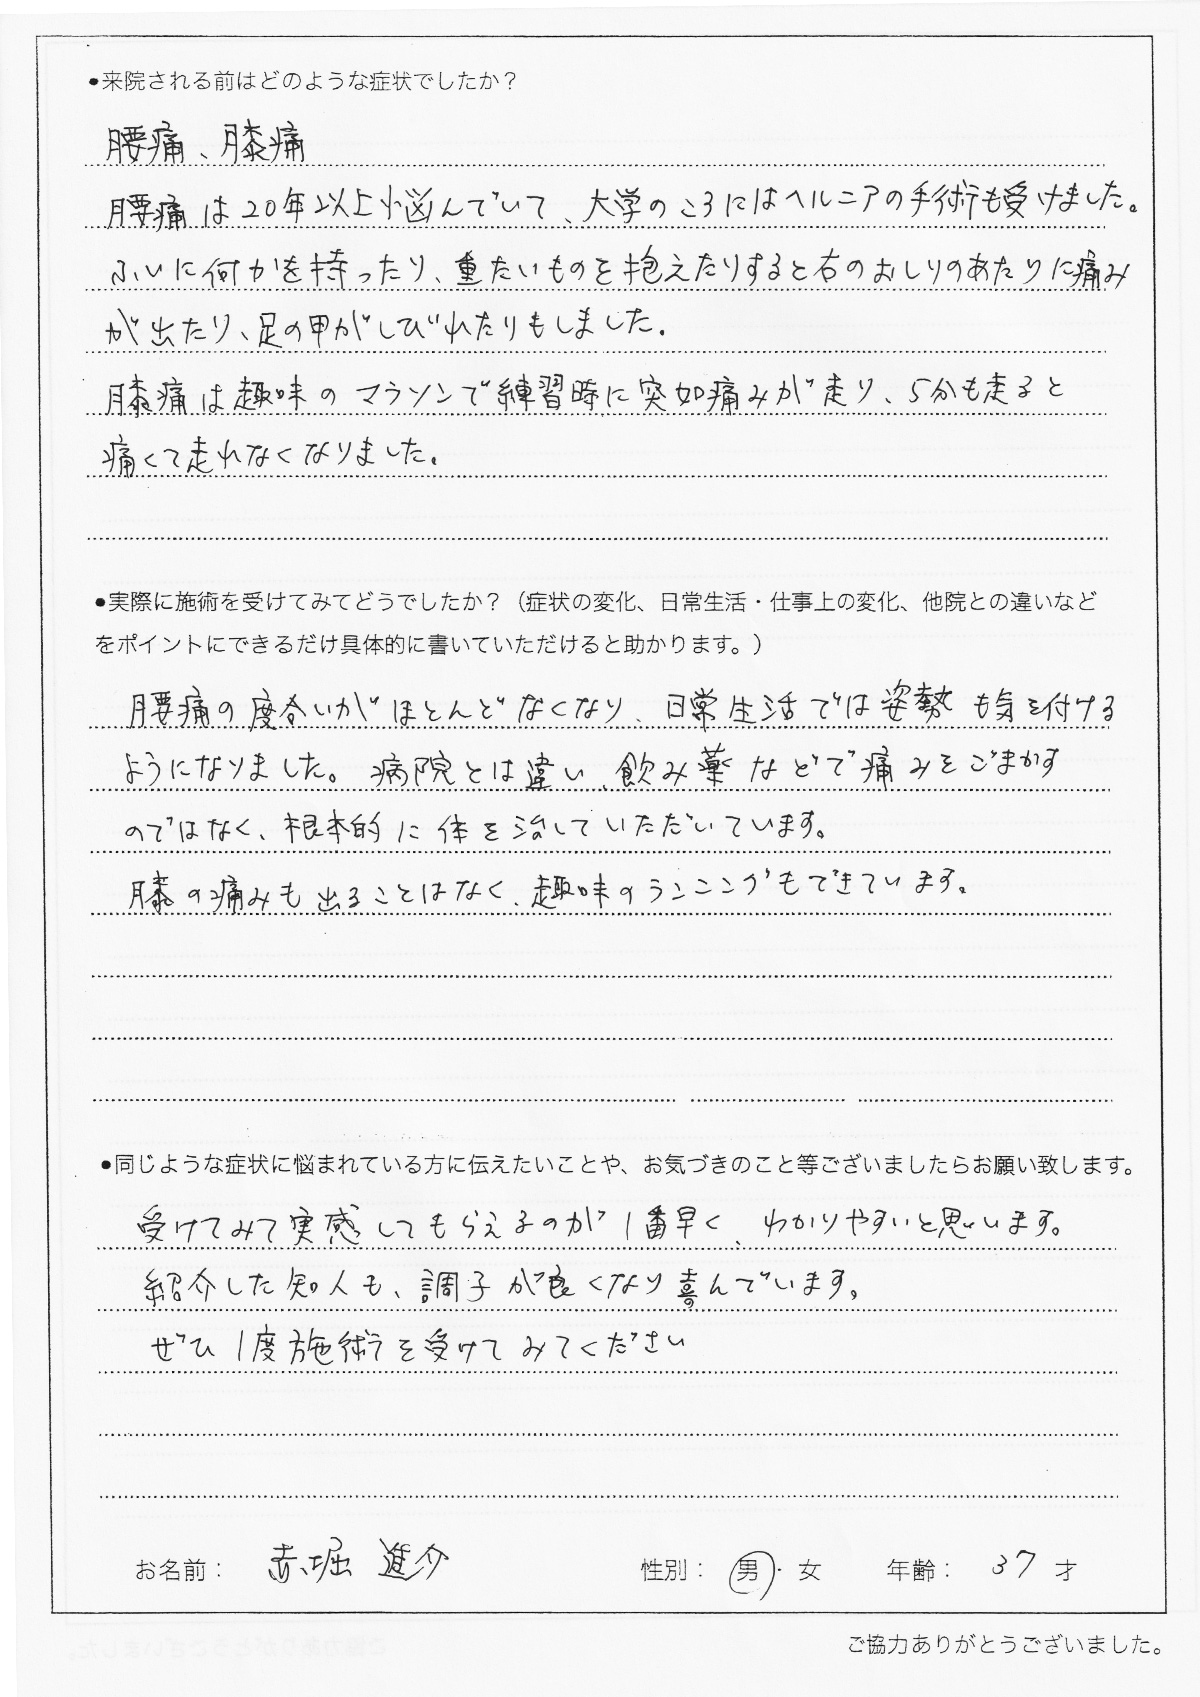 ●来院される前はどのような症状でしたか？
腰痛、膝痛
腰痛は20年以上悩んでいて、大学のころにはヘルニアの手術も受けました。
ふいに何かを持ったり、重たいものを抱えたりすると右のおしりのあたりに痛み
が出たり、足の甲がしびれたりもしました。
膝痛は趣味のマラソンで練習時に突如痛みが走り、5分も走ると
痛くて走れなくなりました。
●実際に施術を受けてみてどうでしたか？（症状の変化、日常生活・仕事上の変化、他院との違いなど
をポイントにできるだけ具体的に書いていただけると助かります。）
腰痛の度合いがほとんどなくなり、日常生活では姿勢も気を付ける
ようになりました。病院とは違い、飲み薬などで痛みをごまかす
のではなく、根本的に体を治していただいています。
膝の痛みも出ることはなく、趣味のランニングもできています。
●同じような症状に悩まれている方に伝えたいことや、お気づきのこと等ございましたらお願い致します。
受けてみて実感してもらえるのが1番早く、わかりやすいと思います。
紹介した知人も、調子が良くなり喜んでいます。
ぜひ1度施術を受けてみてください
お名前： 赤堀 進介 性別： 男・女 年齢： 37 才
ご協力ありがとうございました。